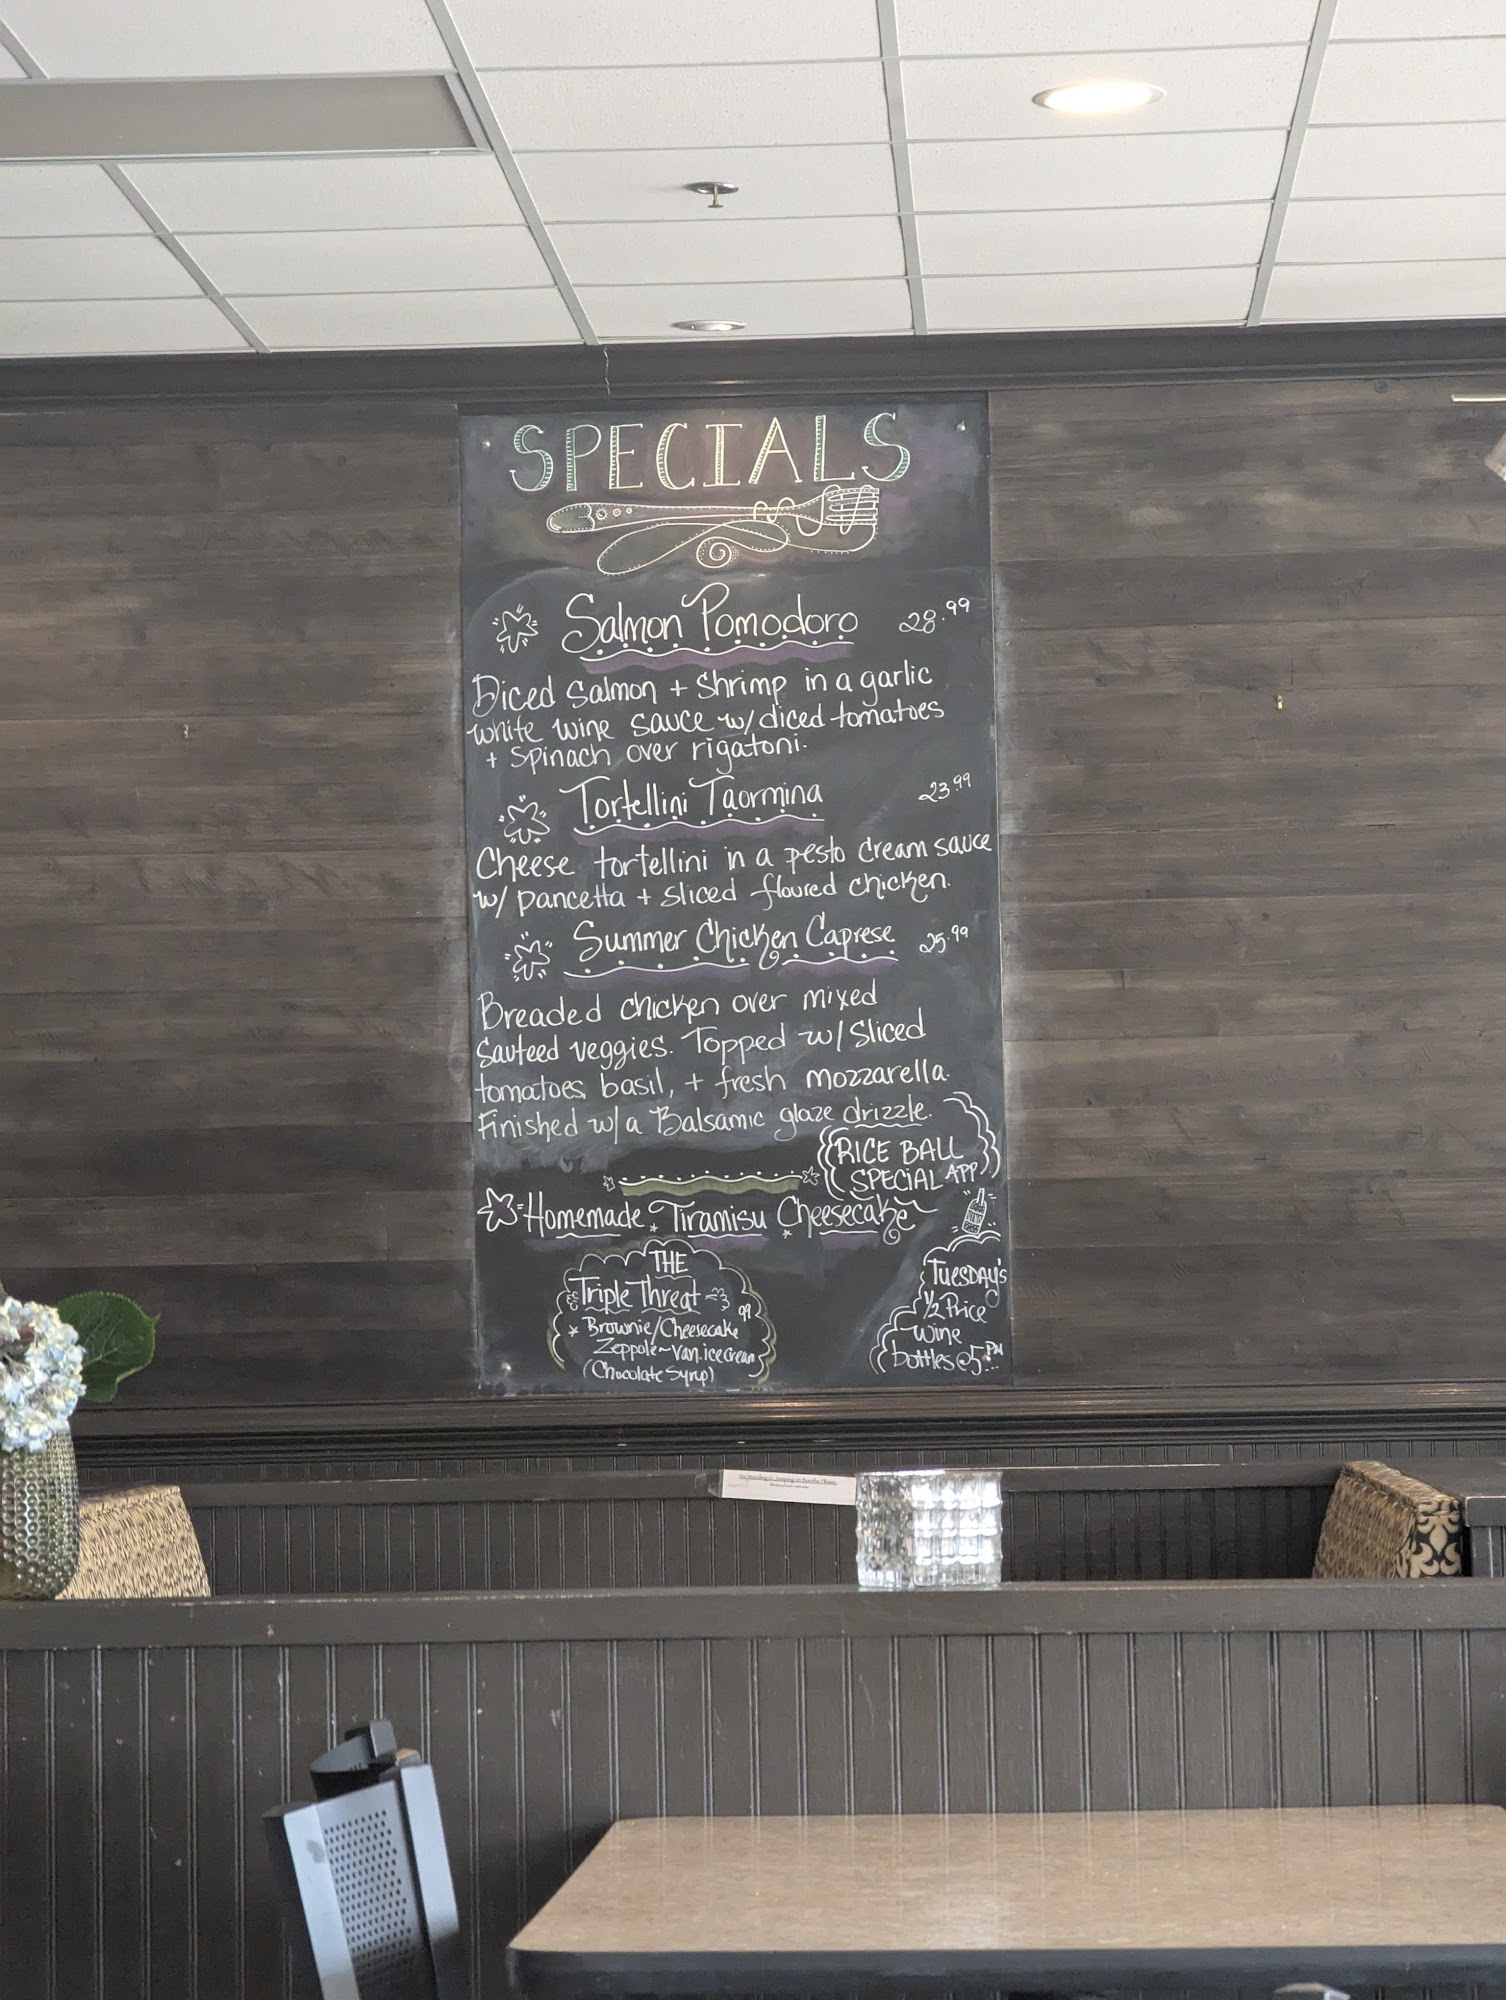 SPECIALS
Salmon Pomodoro 28.99
Diced Salmon + Shrimp in a garlic
white wine sauce w/ diced tomatoes
+ Spinach over rigatoni.
Tortellini Taormina 23.99
Cheese tortellini in a pesto cream sauce
w/ pancetta + sliced floured chicken.
Summer Chicken Caprese 25.99
Breaded chicken over mixed
Sauteed veggies. Topped w/ Sliced
tomatoes, basil, + fresh mozzarella.
Finished w/ a Balsamic glaze drizzle.
RICE BALL
SPECIAL APP
Homemade Tiramisu Cheesecake
THE
Triple Threat
99
Brownie/Cheesecake
Zeppole~van.ice cream
(Chocolate Syrup)
Tuesday's
1/2 Price
wine
bottles @5PM...